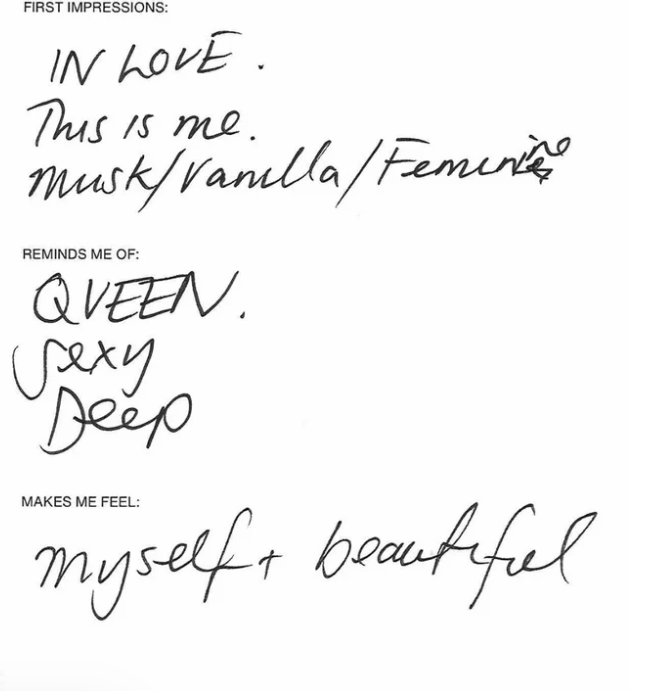 FIRST IMPRESSIONS:
IN LOVE.
This is me.
Musk/Vanilla/Feminine
REMINDS ME OF:
QUEEN.
Sexy
Deep
MAKES ME FEEL:
myself + beautiful